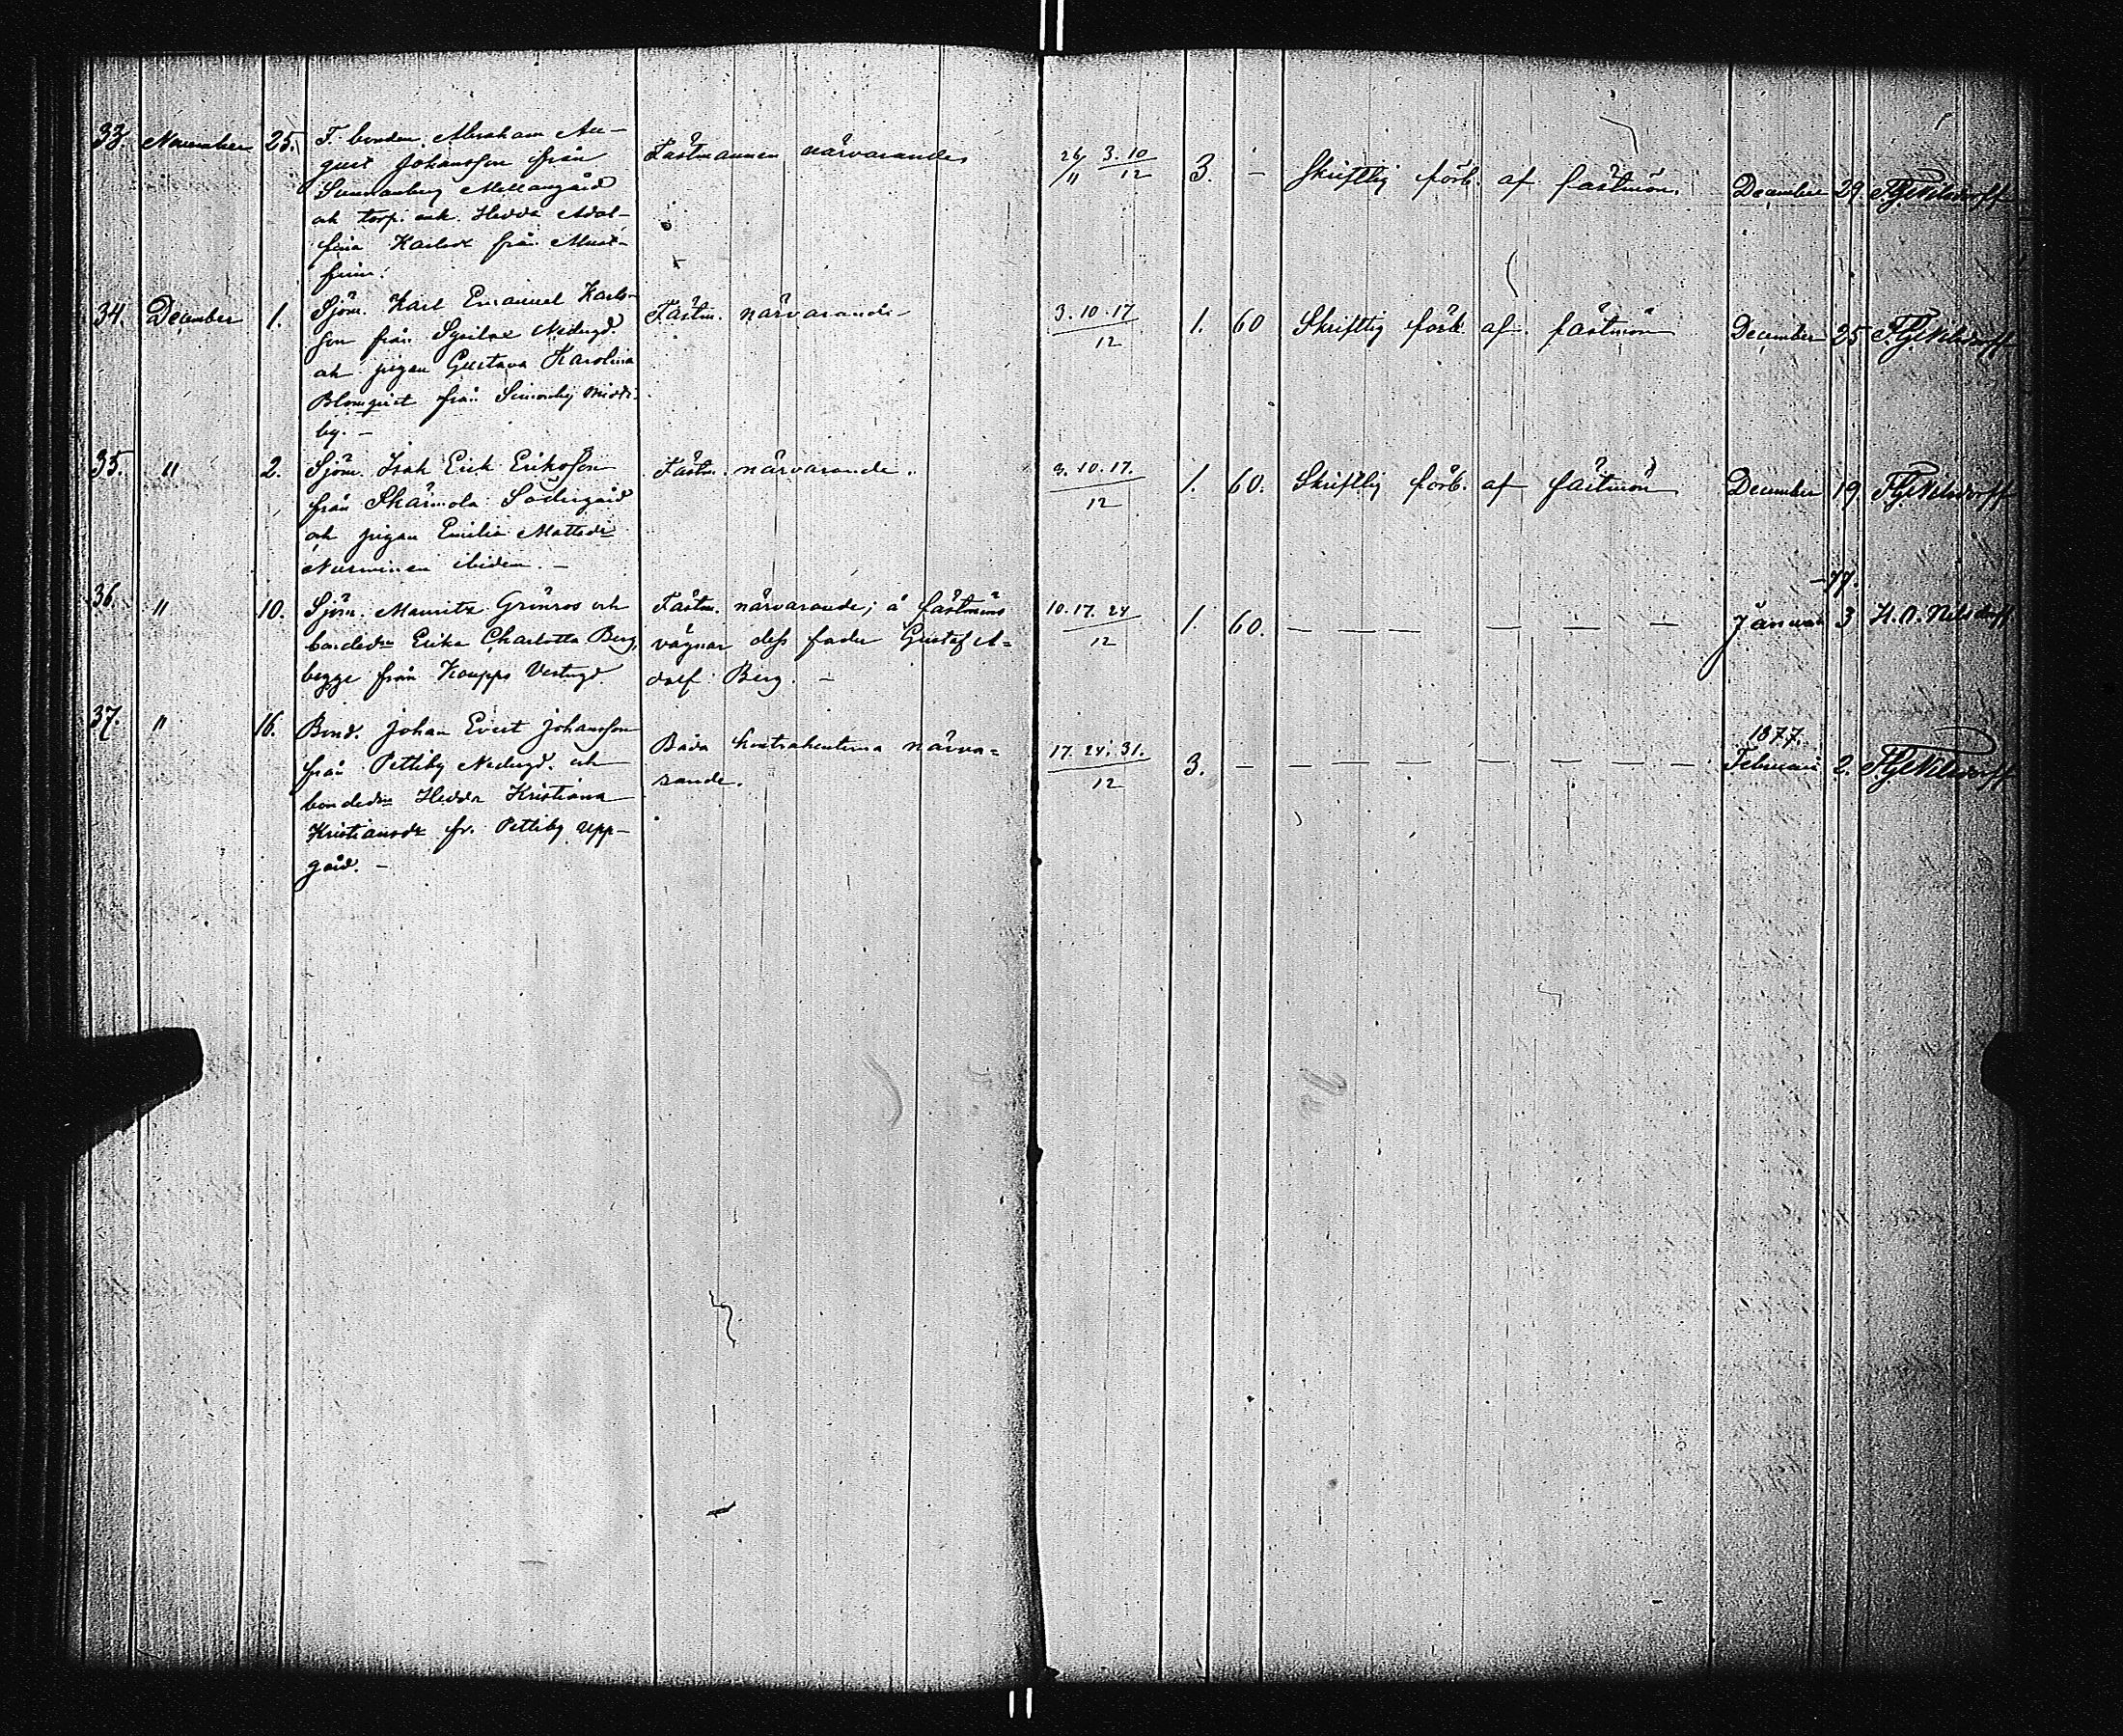 33. November 25. F. bonden Abraham Au-
gust Johansson från
Sunnanberg Mellangård
och torp. enk. Hedda Adol-
fina Karlsdr från
Fästmannen närvarande
26/11 3.10/12 3. – Skriftlig förb. af fästmön. December 29.
34. December 1. Sjöm. Karl Emanuel Karls-
son från Nedergd.
och pigan Gustava Karolina
Blomqvist från Simonby
by. –
Fästm. närvarande
3.10.17/12 1. 60 Skriftlig förb. af fästmön December 25
35. " 2. Sjöm. Isak Erik Eriksson
från Skärmola Södergård
och pigan Emilia Mattsdr
Nurminen ibidem. –
Fästm. närvarande.
3.10.17./12 1. 60. Skriftlig förb. af fästmön December 19
36. " 10. Sjöm. Mauritz Grönros och
bondedr Erika Charlotta Berg,
begge från Kouppo Vestergd.
Fästm. närvarande; å fästmöns
vägnar dess fader Gustaf A-
dolf Berg. –
10.17.24/12 1. 60. — — — — — — —
-77.
Januari 3 K. A. Nilsdorff
37. " 16. Bond. Johan Evert Johansson
från Pettiby Nedergd. och
bondedr Hedda Kristiana
Kristiansdr fr. Pettiby Upp-
gård. –
Båda kontrahenterna närva-
rande.
17.24.31./12 3. — — — — — — — — —
1877.
Februari 2.